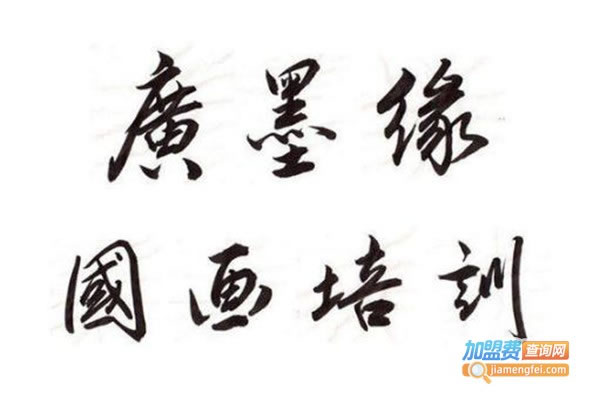 廣墨缘
國画培訓
加盟费查询网
jiamengfei.com